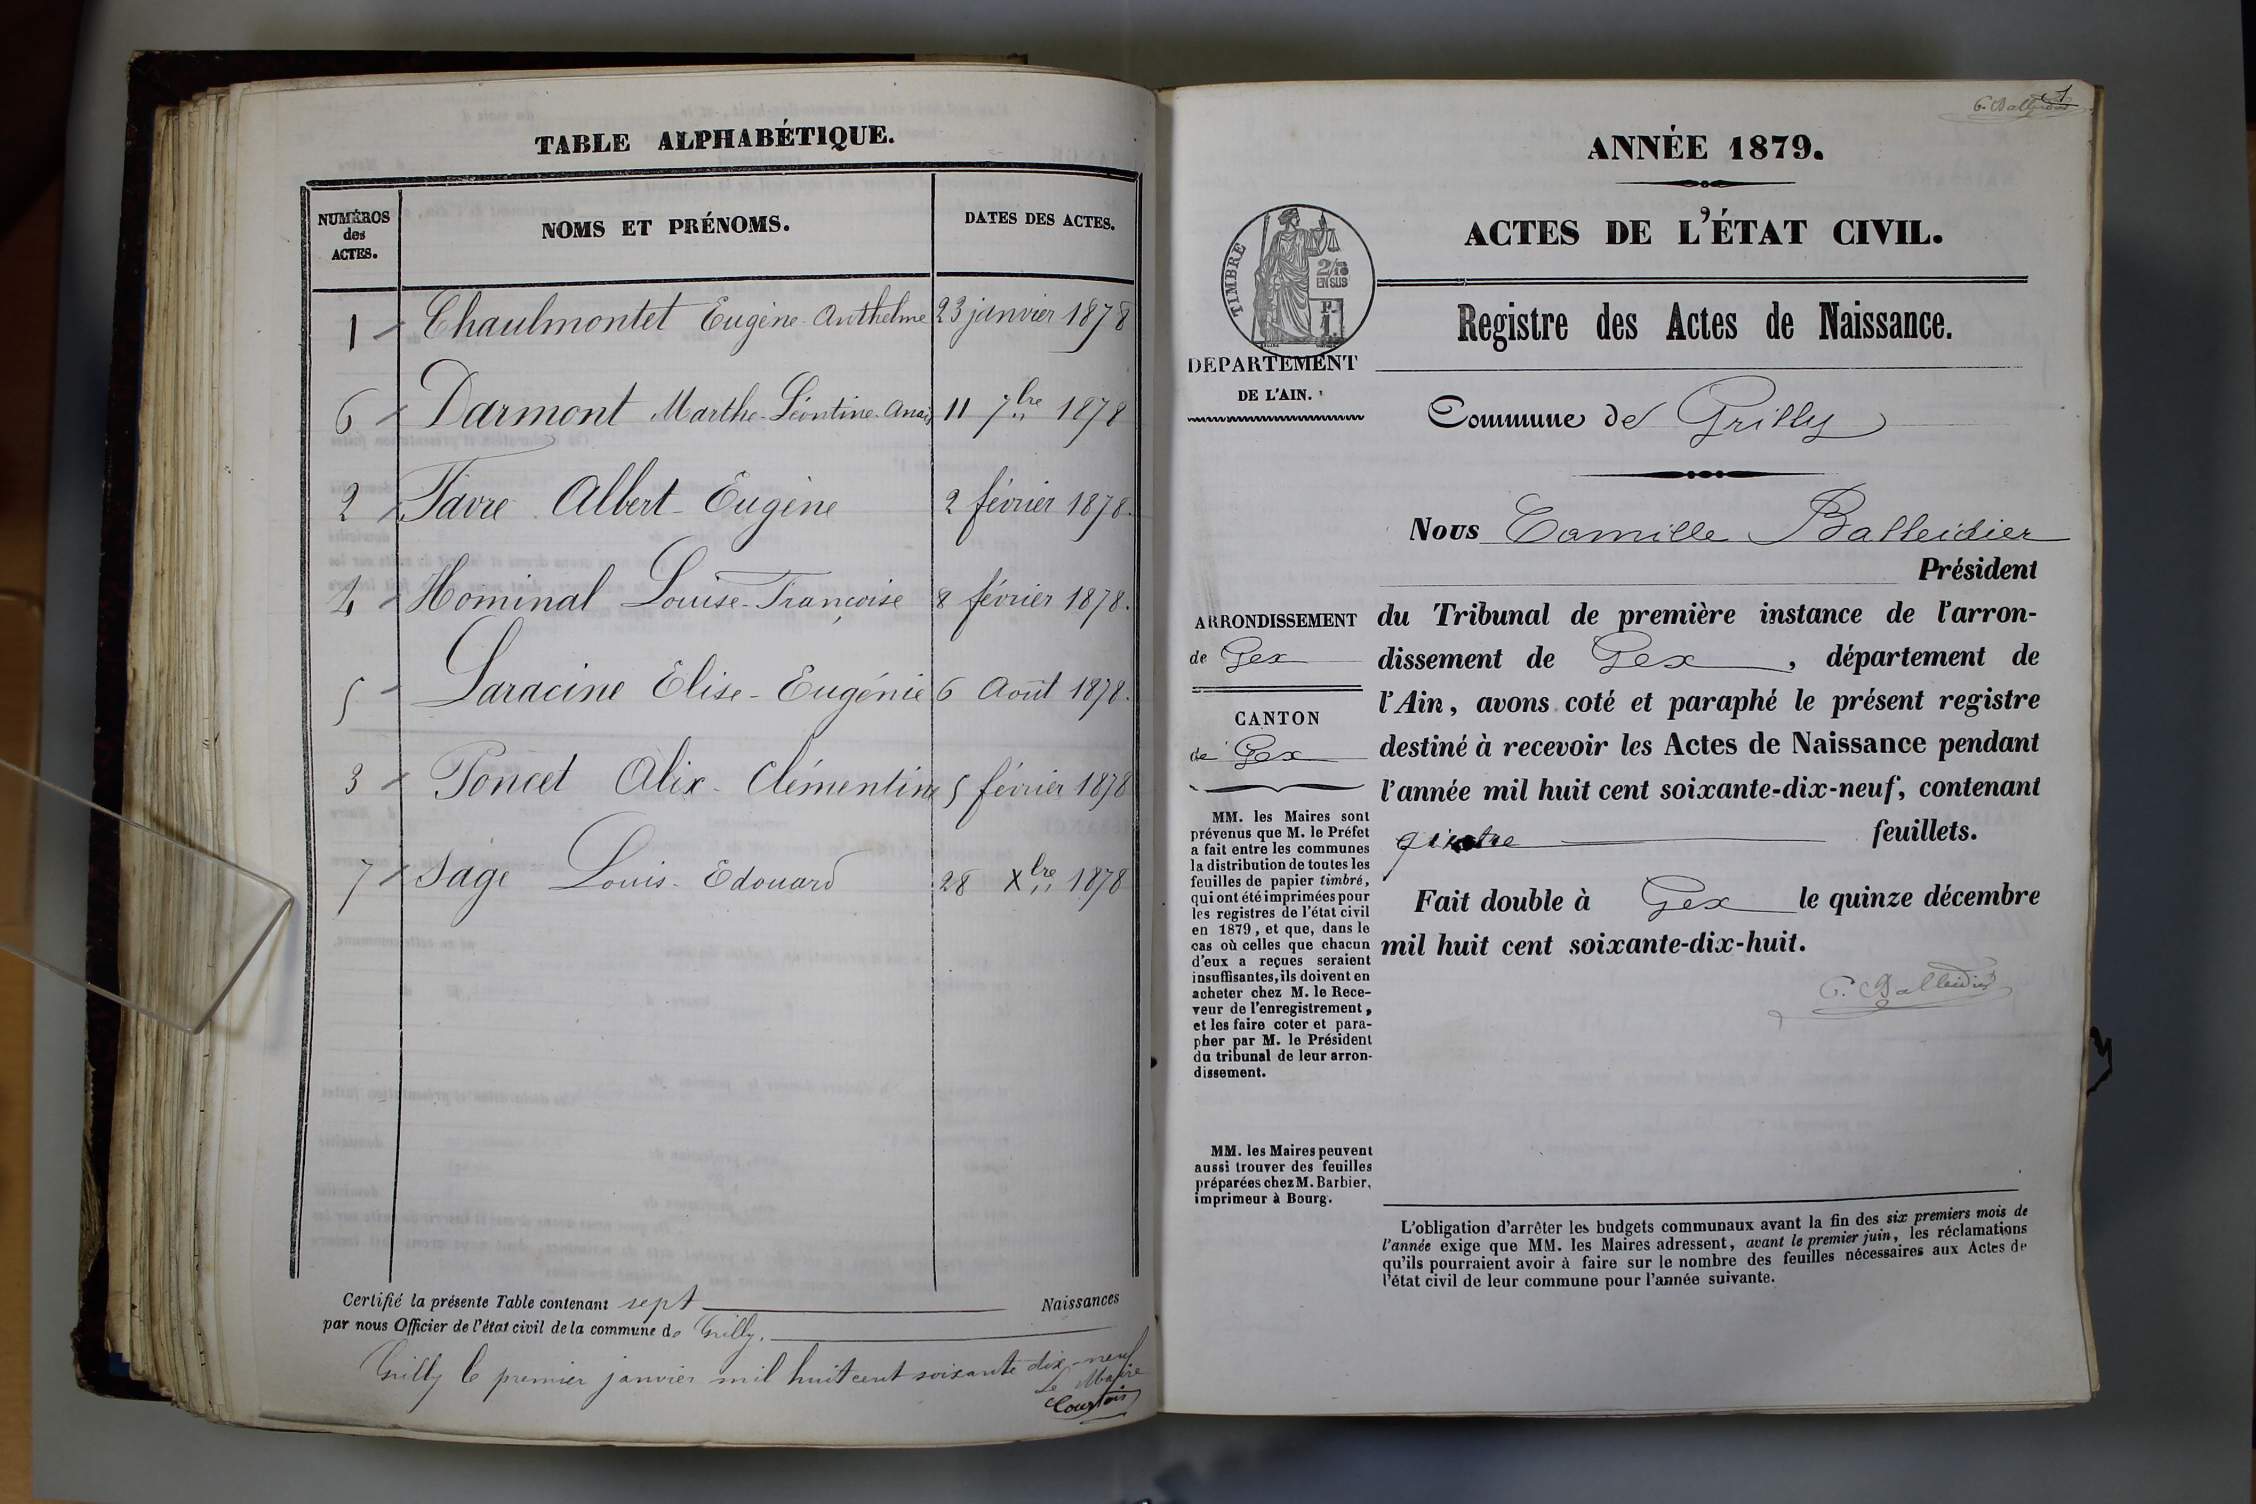 TABLE ALPHABÉTIQUE.
NUMÉROS
des
ACTES.
NOMS ET PRÉNOMS.
DATES DES ACTES.
1 Chaulmontet Eugène Anthelme 23 janvier 1878
6 Darmont Marthe-Léontine-Anaïs 11 7bre 1878
2 Favre Albert-Eugène 2 février 1878.
4 Hominal Louise-Françoise 8 février 1878.
5 Laracine Elise-Eugénie 6 Août 1878.
3 Poncet Alix-Clémentine 5 février 1878
7 Sage Louis-Edouard 28 Xbre 1878
Certifié la présente Table contenant sept Naissances
par nous Officier de l'état civil de la commune de Grilly.
Grilly le premier janvier mil huit cent soixante dix-neuf
Le Maire
Courtois
1
C. Balleidier
ANNÉE 1879.
ACTES DE L'ÉTAT CIVIL.
TIMBRE
2/10
EN SUS
F.
1.
Registre des Actes de Naissance.
DEPARTEMENT
DE L'AIN.
Commune de Grilly
Nous Camille Balleidier
Président
ARRONDISSEMENT
de Gex
CANTON
de Gex
du Tribunal de première instance de l'arron-
dissement de Gex, département de
l'Ain, avons coté et paraphé le présent registre
destiné à recevoir les Actes de Naissance pendant
l'année mil huit cent soixante-dix-neuf, contenant
feuillets.
Fait double à Gex le quinze décembre
mil huit cent soixante-dix-huit.
C. Balleidier
MM. les Maires sont
prévenus que M. le Préfet
a fait entre les communes
la distribution de toutes les
feuilles de papier timbré,
qui ont été imprimées pour
les registres de l'état civil
en 1879, et que, dans le
cas où celles que chacun
d'eux a reçues seraient
insuffisantes, ils doivent en
acheter chez M. le Rece-
veur de l'enregistrement,
et les faire coter et para-
pher par M. le Président
du tribunal de leur arron-
dissement.
MM. les Maires peuvent
aussi trouver des feuilles
préparées chez M. Barbier,
imprimeur à Bourg.
L'obligation d'arrêter les budgets communaux avant la fin des six premiers mois de
l'année exige que MM. les Maires adressent, avant le premier juin, les réclamations
qu'ils pourraient avoir à faire sur le nombre des feuilles nécessaires aux Actes de
l'état civil de leur commune pour l'année suivante.